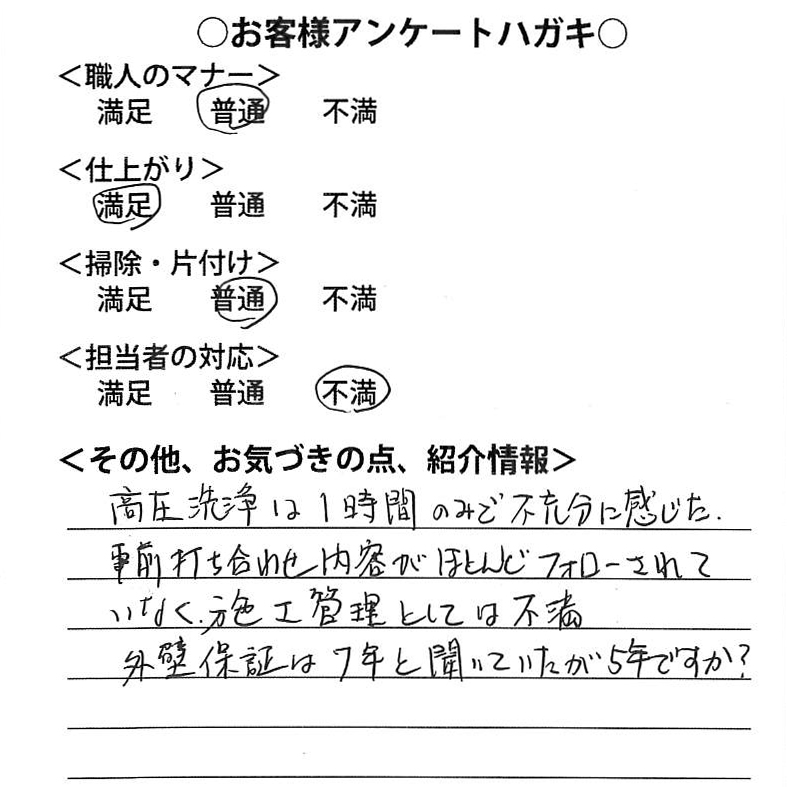 ○お客様アンケートハガキ○
＜職人のマナー＞
満足 普通 不満
＜仕上がり＞
満足 普通 不満
＜掃除・片付け＞
満足 普通 不満
＜担当者の対応＞
満足 普通 不満
＜その他、お気づきの点、紹介情報＞
高圧洗浄は1時間のみで不充分に感じた.
事前打ち合わせ内容がほとんどフォローされて
いなく.施工管理としては不満
外壁保証は7年と聞いていたが5年ですか?